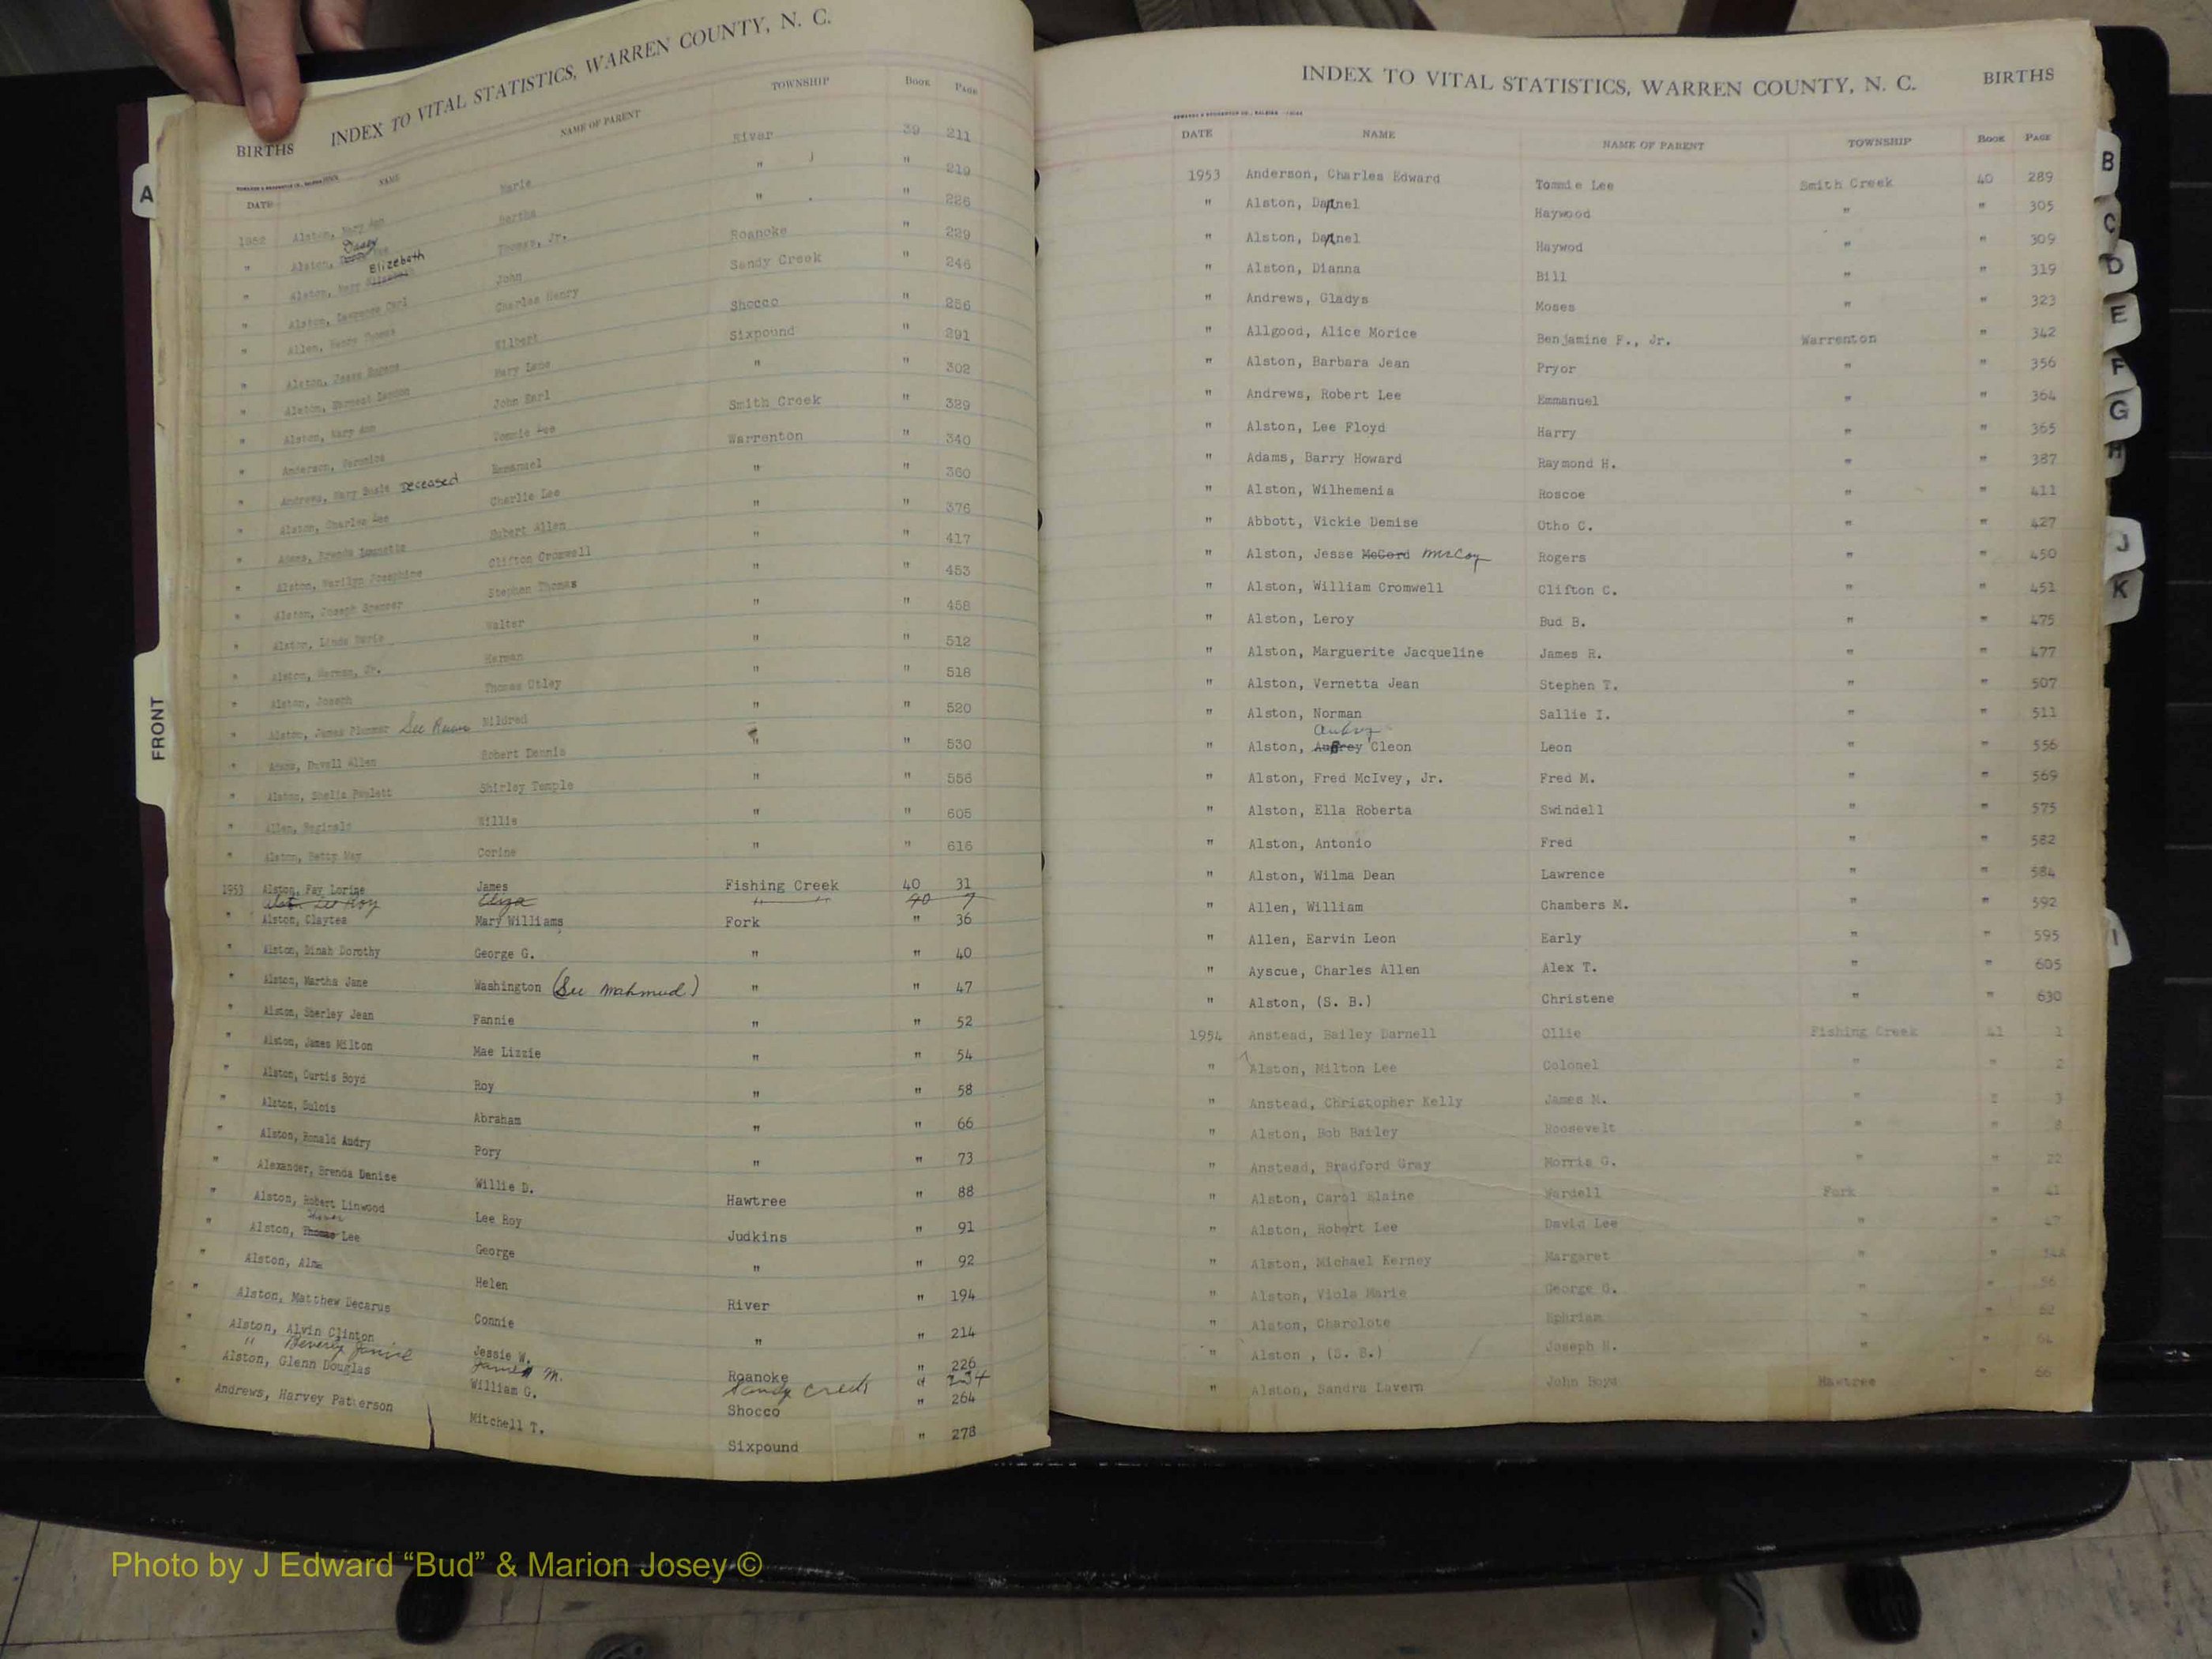 BIRTHS INDEX TO VITAL STATISTICS, WARREN COUNTY, N. C.
DATE NAME NAME OF PARENT TOWNSHIP BOOK PAGE
1952 Alston, Mary Ann Marie River 39 211
" Alston, Bertha " " 219
" Alston, Mary Elizabeth Thomas, Jr. " " 226
" Alston, Lawrence Carl John Roanoke " 229
" Allen, Henry Thomas Charles Henry Sandy Creek " 246
" Alston, James Eugene Wilbert Shocco " 256
" Alston, Earnest Lendon Mary Lane Sixpound " 291
" Alston, Mary Ann John Earl " " 302
" Anderson, Veronica Tommie Lee Smith Creek " 329
" Andrews, Mary Susie Deceased Emmanuel Warrenton " 340
" Alston, Charles Lee Charlie Lee " " 360
" Adams, Brenda Hubert Allen " " 376
" Alston, Marilyn Josephine Clifton Cromwell " " 417
" Alston, Joseph Spencer Stephen Thomas " " 453
" Alston, Linda Marie Walter " " 458
" Alston, Herman, Jr. Herman " " 512
" Alston, Joseph Thomas Otley " " 518
" Alston, James Plummer See Mildred " " 520
" Adams, Duvell Allen Robert Dennis " " 530
" Alston, Shelia Paulett Shirley Temple " " 556
" Allen, Reginald Willie " " 605
" Alston, Betty May Corine " " 616
1953 Alston, Fay Lorine James Fishing Creek 40 31
Alst. Lee Roy Eliza " " 40 7
" Alston, Claytea Mary Williams Fork " 36
" Alston, Dinah Dorothy George G. " " 40
" Alston, Martha Jane Washington (See Mahmud) " " 47
" Alston, Sherley Jean Fannie " " 52
" Alston, James Milton Mae Lizzie " " 54
" Alston, Curtis Boyd Roy " " 58
" Alston, Sulois Abraham " " 66
" Alston, Ronald Audry Pory " " 73
" Alexander, Brenda Denise Willie D. Hawtree " 88
" Alston, Robert Linwood Lee Roy Judkins " 91
" Alston, Thomas Lee George " " 92
" Alston, Alma Helen River " 194
" Alston, Matthew Decarus Connie " " 214
" Alston, Alvin Clinton Jessie W. Roanoke " 226
" Beverly Janice James M. Sandy Creek " 234
" Alston, Glenn Douglas William G. Shocco " 264
" Andrews, Harvey Patterson Mitchell T. Sixpound " 278
INDEX TO VITAL STATISTICS, WARREN COUNTY, N. C. BIRTHS
DATE NAME NAME OF PARENT TOWNSHIP BOOK PAGE
1953 Anderson, Charles Edward Tommie Lee Smith Creek 40 289
" Alston, Darnel Haywood " " 305
" Alston, Darnel Haywod " " 309
" Alston, Dianna Bill " " 319
" Andrews, Gladys Moses " " 323
" Allgood, Alice Morice Benjamine F., Jr. Warrenton " 342
" Alston, Barbara Jean Pryor " " 356
" Andrews, Robert Lee Emmanuel " " 364
" Alston, Lee Floyd Harry " " 365
" Adams, Barry Howard Raymond H. " " 387
" Alston, Wilhemenia Roscoe " " 411
" Abbott, Vickie Demise Otho C. " " 427
" Alston, Jesse McCord McCoy Rogers " " 450
" Alston, William Cromwell Clifton C. " " 451
" Alston, Leroy Bud B. " " 475
" Alston, Marguerite Jacqueline James R. " " 477
" Alston, Vernetta Jean Stephen T. " " 507
" Alston, Norman Sallie I. " " 511
Aubry
" Alston, Aubrey Cleon Leon " " 556
" Alston, Fred McIvey, Jr. Fred M. " " 569
" Alston, Ella Roberta Swindell " " 575
" Alston, Antonio Fred " " 582
" Alston, Wilma Dean Lawrence " " 584
" Allen, William Chambers M. " " 592
" Allen, Earvin Leon Early " " 595
" Ayscue, Charles Allen Alex T. " " 605
" Alston, (S. B.) Christene " " 630
1954 Anstead, Bailey Darnell Ollie Fishing Creek 41 1
" Alston, Milton Lee Colonel " " 2
" Anstead, Christopher Kelly James M. " " 3
" Alston, Bob Bailey Roosevelt " " 8
" Anstead, Bradford Gray Morris G. " " 22
" Alston, Carol Elaine Wardell Fork " 41
" Alston, Robert Lee David Lee " " 47
" Alston, Michael Kerney Margaret " "
" Alston, Viola Marie George G. " " 56
" Alston, Charolote Ephriam " " 62
" Alston , (S. B.) Joseph H. " " 64
" Alston, Sandra Lavern John Boyd Hawtree " 66
A
FRONT
B
C
D
E
F
G
H
J
K
I
Photo by J Edward “Bud” & Marion Josey ©